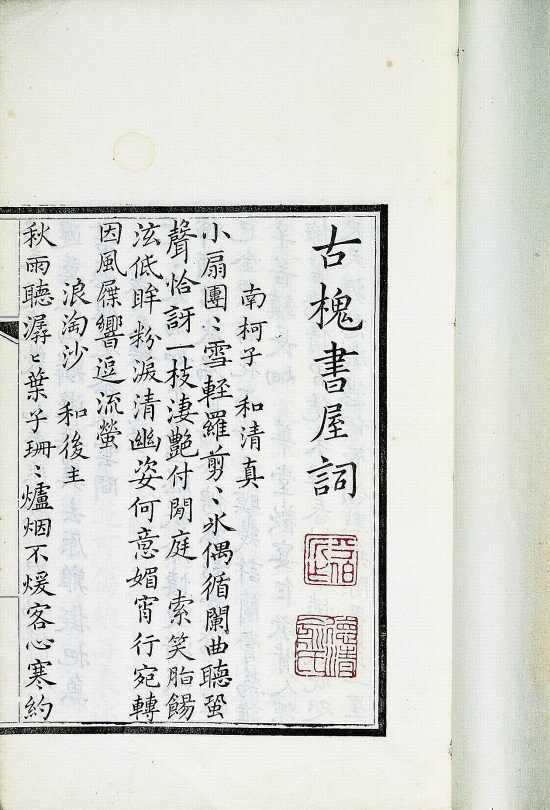 古槐書屋詞
南柯子　和清真
小扇團〻雪輕羅剪〻冰偶循闌曲聽蛩
聲恰訝一枝淒艷付閒庭　索笑脂餳
泫低眸粉淚清幽姿何意媚宵行宛轉
因風屧響逗流螢
浪淘沙　和後主
秋雨聽潺〻葉子珊〻爐烟不煖客心寒約
德清俞氏